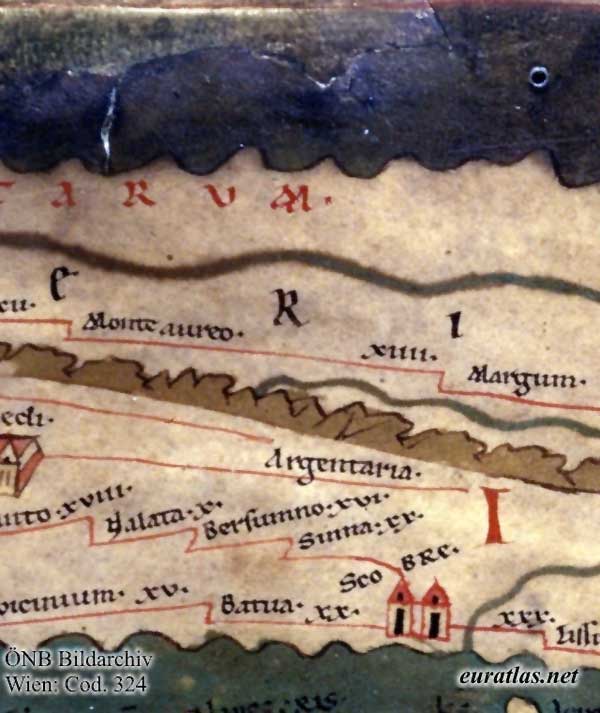 T A R U M.
E R I
Monte aureo.
XIIII.
Margum.
ecli.
Argentaria.
I
XVIII.
Halata. X.
Bersumno. XVI.
Sinna. XX.
Sco BRE.
XV.
Batua. XX.
XXX.
Lissi
ÖNB Bildarchiv
Wien: Cod. 324
euratlas.net